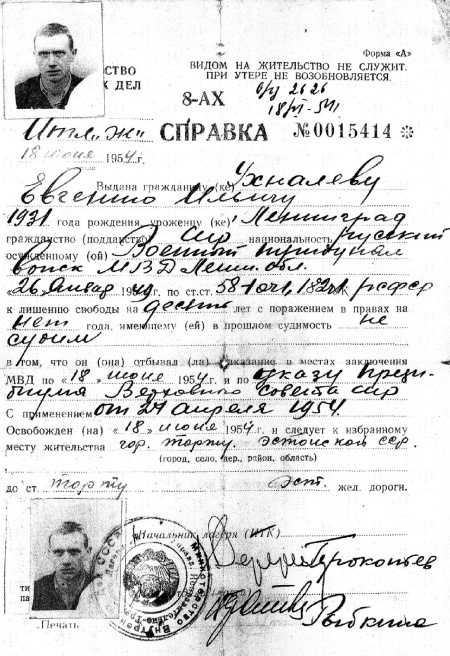 Форма «А»
СТВО
Х ДЕЛ
ВИДОМ НА ЖИТЕЛЬСТВО НЕ СЛУЖИТ.
ПРИ УТЕРЕ НЕ ВОЗОБНОВЛЯЕТСЯ.
8-АХ
СПРАВКА №0015414
18 июня 1954 г.
Выдана гражданину (ке) Ухналеву
Евгению Ильичу
1931 года рождения, уроженцу (ке) Ленинград
гражданство (подданство) национальность русский
осужденному (ой) Военный трибунал
войск МВД Ленин. обл.
«26» январ по ст.ст. РСФСР
к лишению свободы на десять лет с поражением в правах на
нет года, имеющему (ей) в прошлом судимость не
судим
в том, что он (она) отбывал (ла) наказание в местах заключения
МВД по «18» июня 1954 г. и по указу Прези-
диума Верховного Совета СССР
С применением от 24 апреля 1954
Освобожден (на) «18» июня 1954 г. и следует к избранному
месту жительства гор. Тарту. Эстонской ССР.
(город, село, дер., район, область)
до ст. Тарту Эст. жел. дороги.
Начальник лагеря (ИТК)
Прокопьев
Рыбкина
Печать